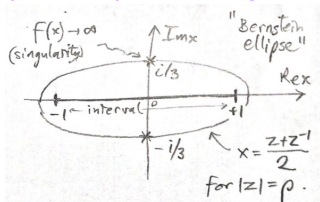 f(x) → ∞
(singularity)
Im x
"Bernstein
ellipse"
i/3
Re x
-1
interval
0
+1
-i/3
x = z+z⁻¹
2
for |z| = ρ.